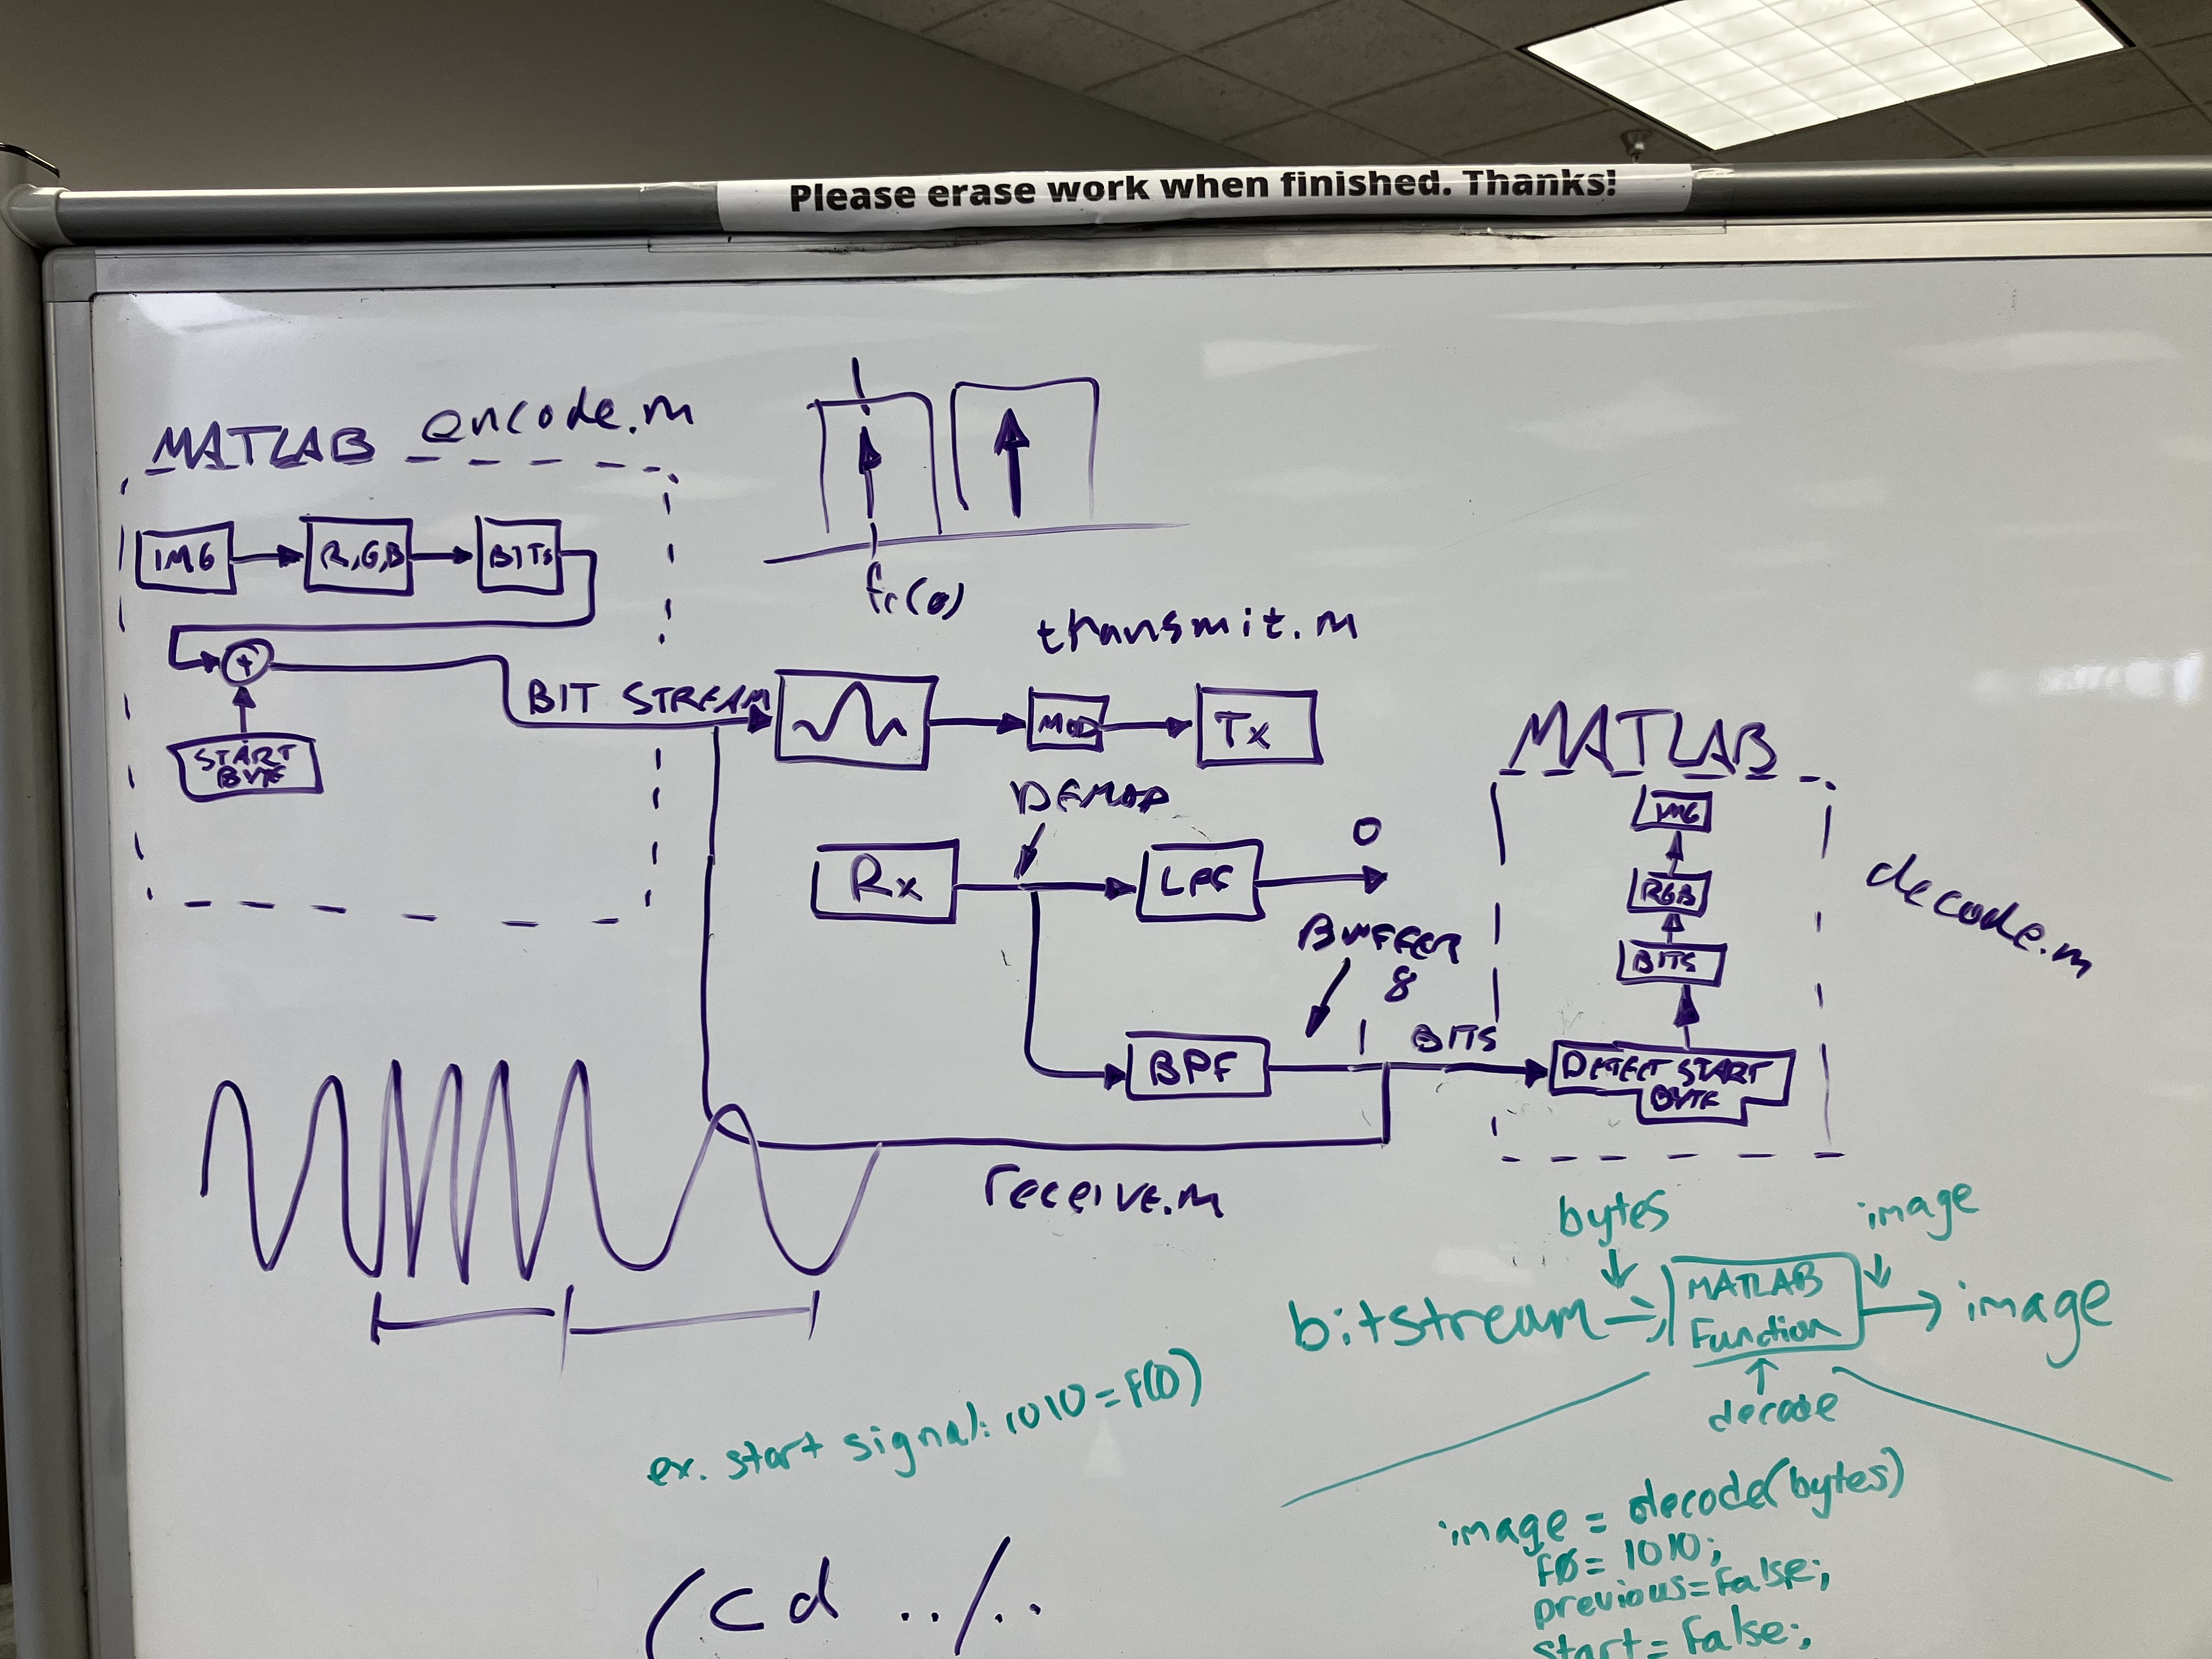 Please erase work when finished. Thanks!
MATLAB encode.m
IMG
R,G,B
BITS
+
START
BYTE
BIT STREAM
fc(0)
transmit.m
MOD
Tx
DEMOD
Rx
LPF
0
BUFFER
8
BPF
1
BITS
receive.m
MATLAB
IMG
RGB
BITS
DETECT START
BYTE
decode.m
bytes
image
bitstream
MATLAB
Function
image
decode
ex. start signal: 1010 = F(0)
image = decode(bytes)
fØ= 1010;
previous=False;
start= False;
(cd ../..